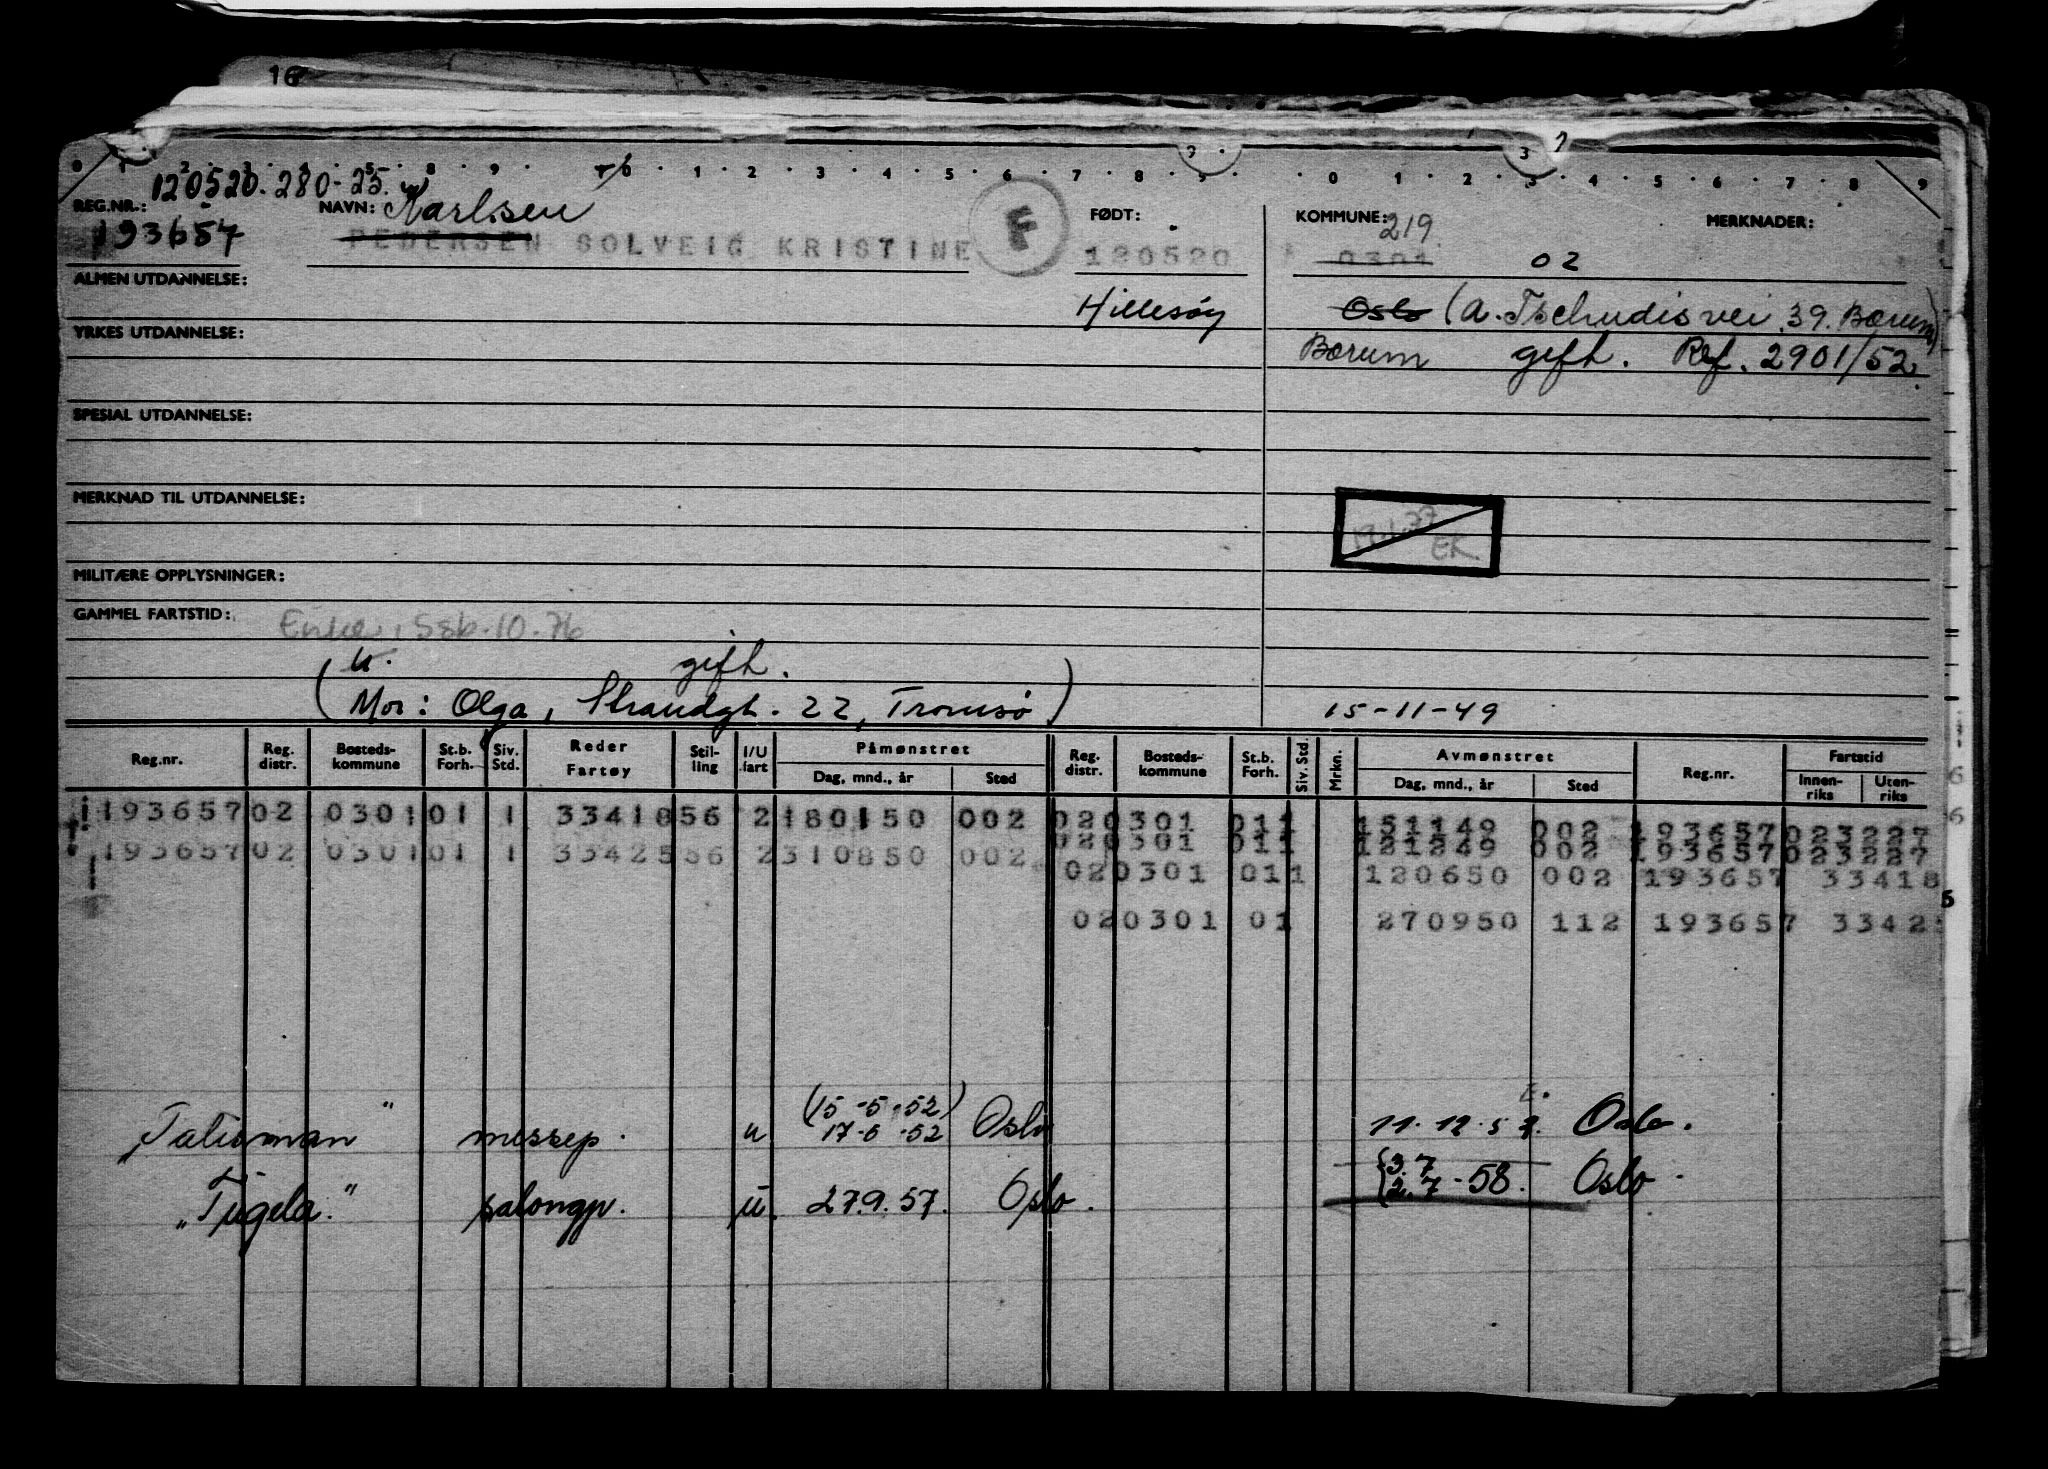 16
0 1 2 3 4 5 8 9 6 1 2 3 4 5 6 7 8 9 0 1 2 3 4 5 6 7 8 9
120520. 280-25.
REG.NR.: NAVN: Karlsen FØDT: KOMMUNE: 219 MERKNADER:
193657 PEDERSEN SOLVEIG KRISTINE F 120520 0301 02
ALMEN UTDANNELSE:
Hillesøy Oslo (A. Tschudis vei 39. Bærum)
YRKES UTDANNELSE:
Bærum gift. Ref. 2901/52.
SPESIAL UTDANNELSE:
MERKNAD TIL UTDANNELSE:
EK
MILITÆRE OPPLYSNINGER:
GAMMEL FARTSTID: Enke, Ssb-10-76
u. gift.
(Mor: Olga, Strandgt. 22, Tromsø) 15-11-49
Reg.nr. Reg. distr. Bosteds-kommune St.b. Forh. Siv. Std. Reder Fartøy Stil-ling I/U fart Påmønstret Dag, mnd., år Sted Reg. distr. Bosteds-kommune St.b. Forh. Siv. Std. Mrkn. Avmønstret Dag, mnd., år Sted Reg.nr. Fartstid Innen-riks Uten-riks
193657 02 0301 01 1 33418 56 2 180150 002 020301 011 151149 002 193657 023227
193657 02 0301 01 1 33425 56 2 310850 002 020301 011 121249 002 193657 023227
020301 011 120650 002 193657 33418
020301 01 270950 112 193657 3342
Talisman" messep. u (15-5-52) 17-6-52 Oslo 11-12-52. Oslo.
"Tugela." salongp. u. 27.9.57. Oslo. {3.7 2.7-58. Oslo.